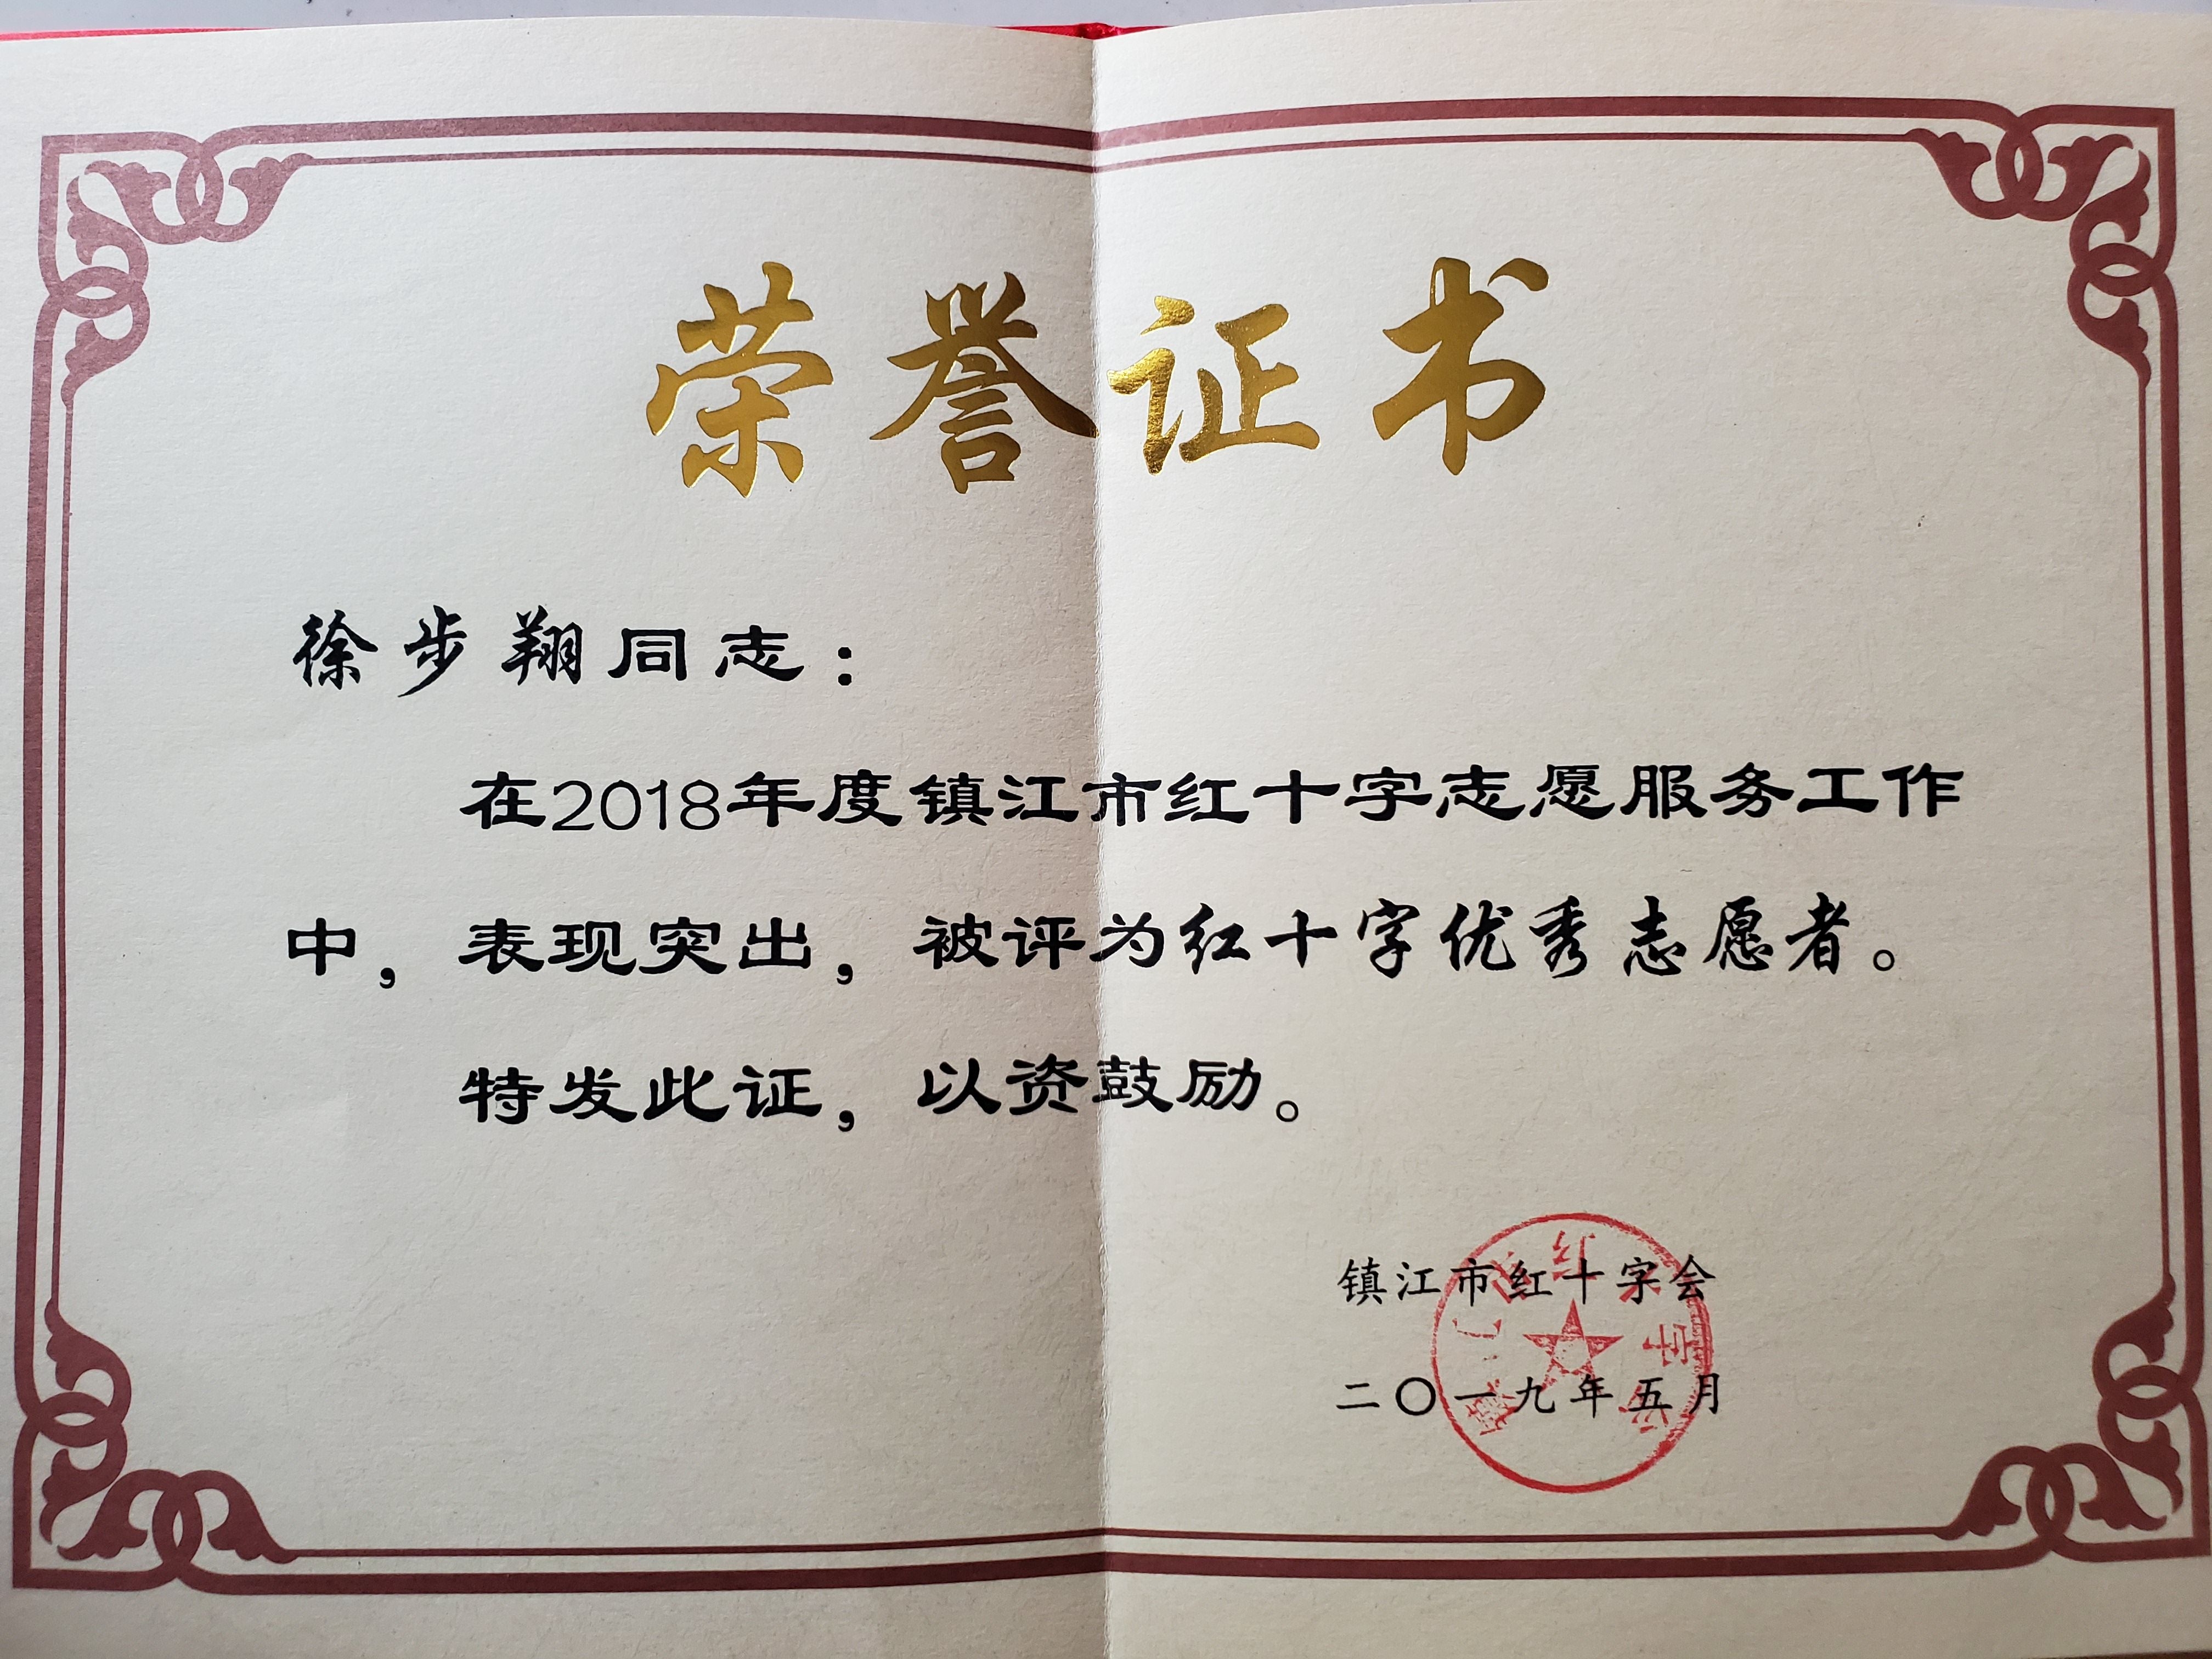 荣誉证书
徐步翔同志：
在2018年度镇江市红十字志愿服务工作
中，表现突出，被评为红十字优秀志愿者。
特发此证，以资鼓励。
镇江市红十字会
二〇一九年五月